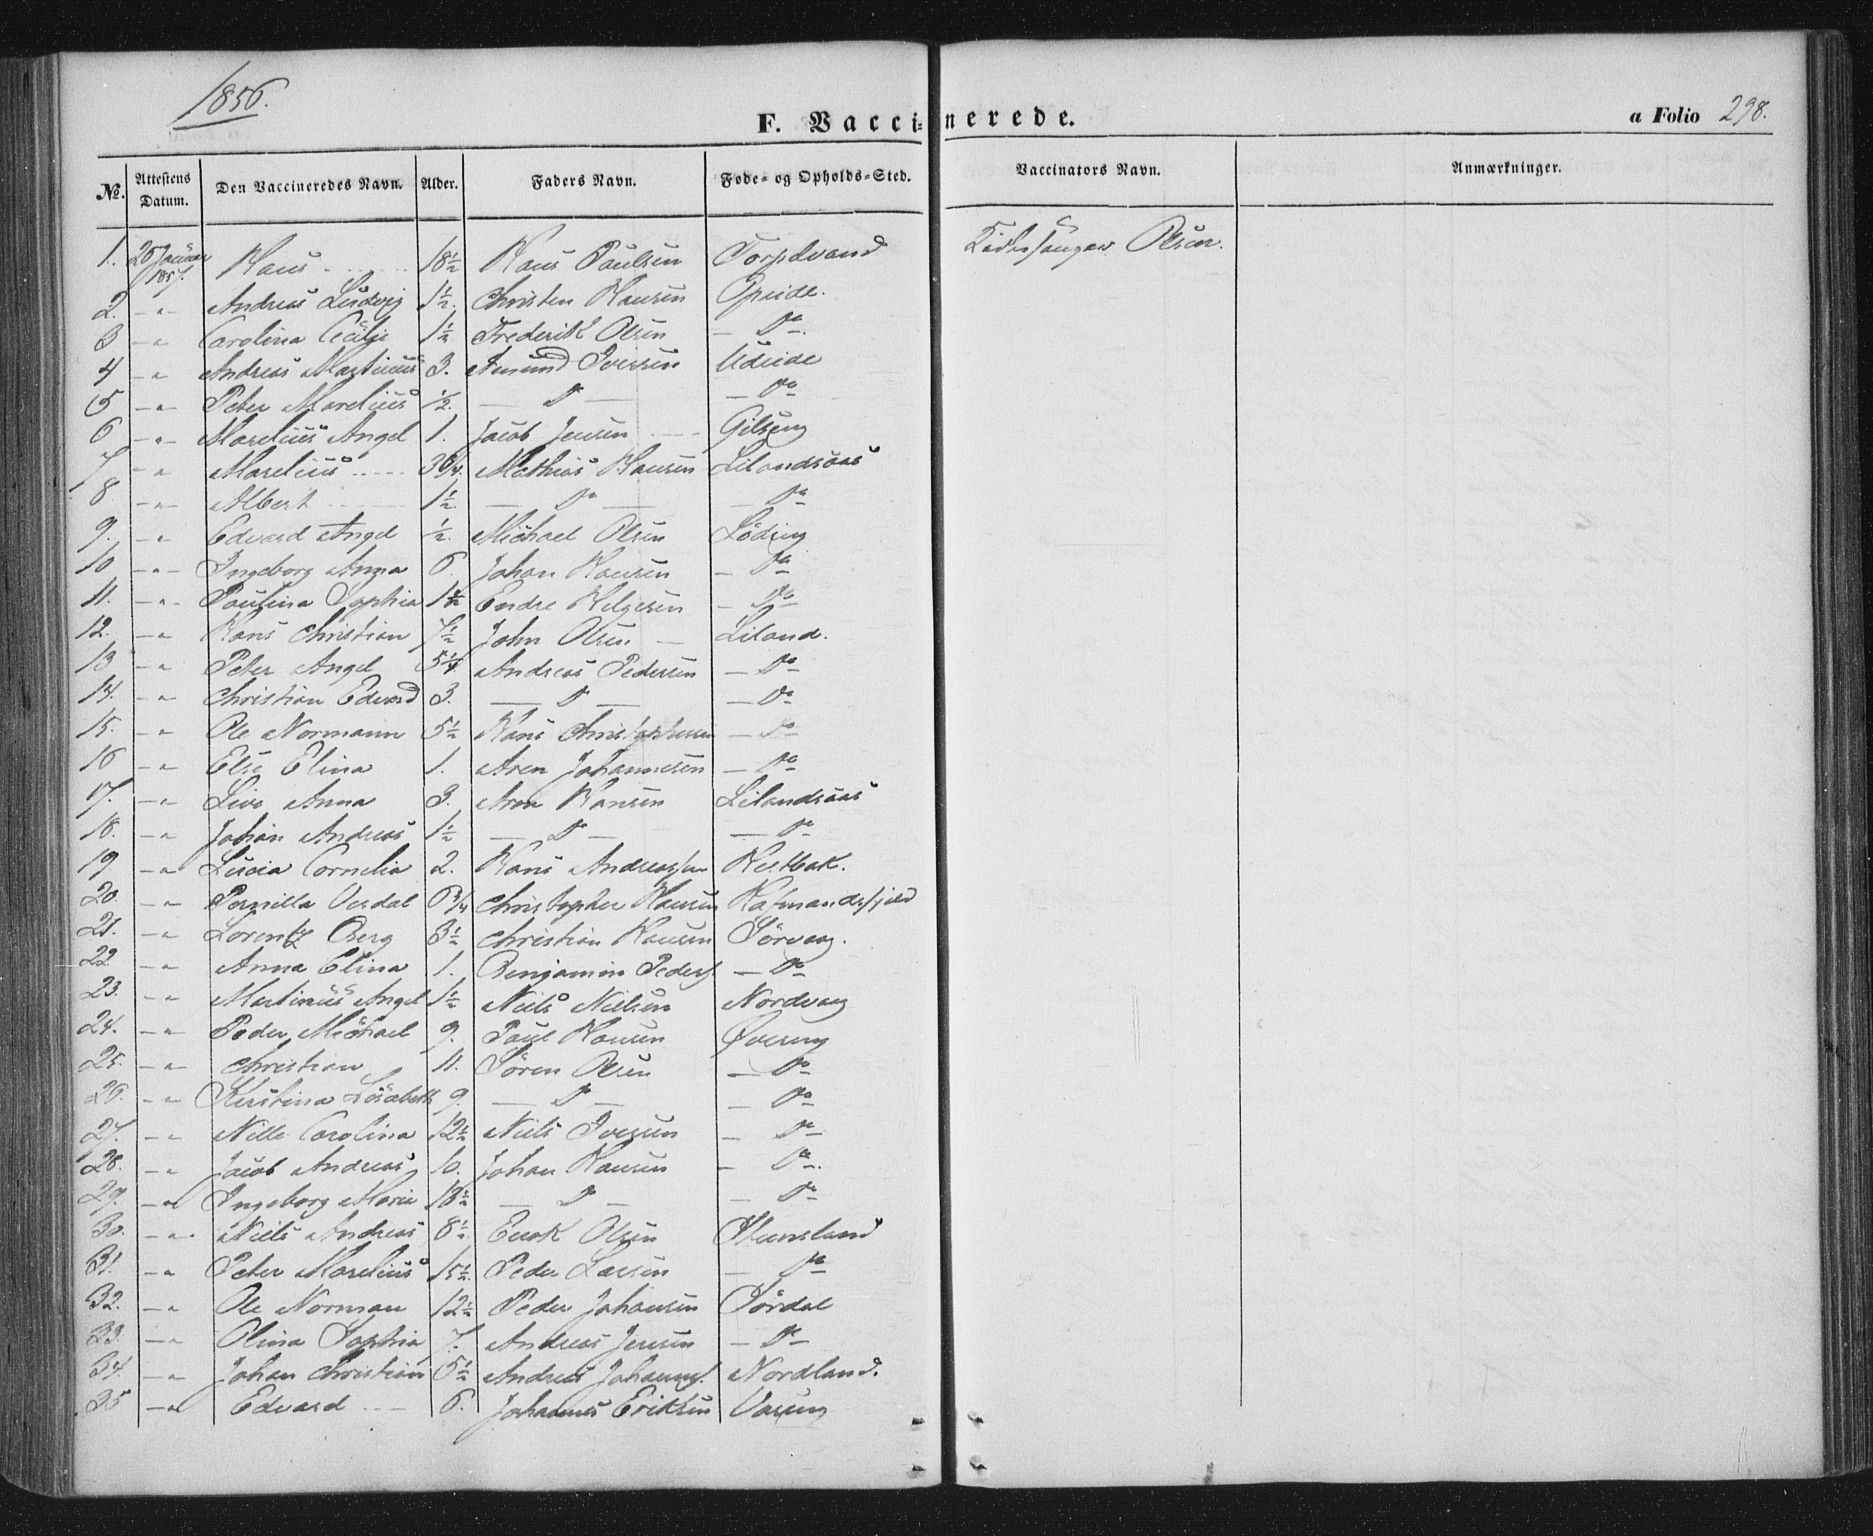 1856.
F. Vaccinerede.
a Folio 298.
No. Attestens Datum. Den Vaccineredes Navn. Alder. Faders Navn. Føde- og Opholds-Sted. Vaccinators Navn. Anmærkninger.
1. 26 Januar 1857. Hans 18½ Hans Paulsen Torpdvand Kirkesanger Olsen.
2. -"- Andreas Ludvig 1½. Christen Hansen Opeide.
3 -"- Carolina Cecilje 1½ Frederik Olsen — Do.
4 -"- Andreas Martinus 3. Amund Iversen Udeide
5 -"- Peter Marelius ½. — D — — Do
6 -"- Marelius Angel 1. Jacob Jensen Gilseng
7 -"- Marelius Mathias Hansen Lilandsaas
8 -"- Albert 1½. — Do — — Do
9. -"- Edvard Angel ½. Michael Olsen Löding
10 -"- Ingeborg Anna 6. Johan Hansen — Do
11. -"- Paulina Sophia 1½ Endre Helgesen — Do
12. -"- Hans Christian 7½ John Olsen — Liland.
13 -"- Peter Angel 5¼ Andreas Pedersen — Do
14. -"- Christian Edvard 3. — D — — Do
15. -"- Ole Normann 5½ Hans Christophersen — Do
16 -"- Else Elina 1. Aren Johannesen — Do
17. -"- Live Anna 3. Aron Hansen Lilandsaas
18. -"- Johan Andreas 1½ — D — — Do
19. -"- Lucia Cornelia 2. Hans Andreassen
20. -"- Pernilla Verdal 6¾ Christopher Hansen
21. -"- Lorentz Berg 3½ Christian Hansen Sörvaag.
22. -"- Anna Elina 1. Benjamin Peders. — Do
23. -"- Martinus Angel 1½ Niels Nielsen Nordvaag
24. -"- Peder Michael 9. Paul Hansen Øvereng
25. -"- Christian 11. Sören Olsen — Do
26. -"- Kirstina Lisabeth 9. — D — — Do
27. -"- Nille Carolina 12½ Niels Iversen — Do
28. -"- Jacob Andreas 10. Johan Hansen — Do.
29. -"- Ingeborg Maria 13½ — D — — Do
30. -"- Niels Andreas 8½ Enok Olsen Stensland
31. -"- Peter Marelius 15½. Peder Larsen — Do
32. -"- Ole Norman 12½ Peder Johansen Sördal
33. -"- Olina Sophia 7. Andreas Jensen — Do
34. -"- Johan Christian 5½ Andreas Johannes. Nordland.
35 -"- Edvard 6. Johannes Eriksen